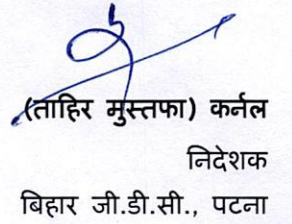 (ताहिर मुस्तफा) कर्नल
निदेशक
बिहार जी.डी.सी., पटना